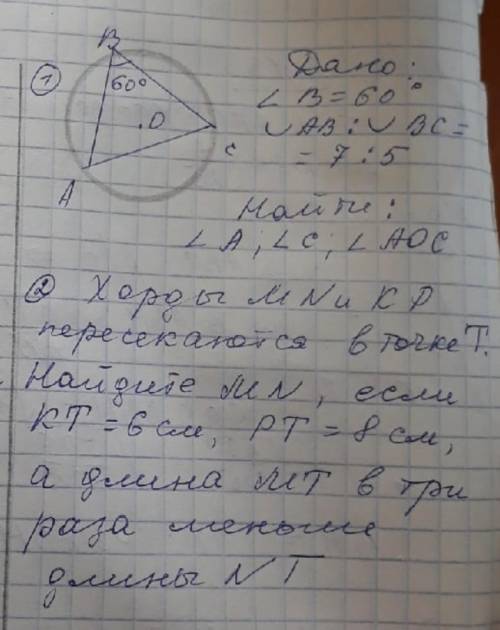 ①
B
60°
.O
C
A
Дано:
∠B = 60°
◡AB : ◡BC =
= 7 : 5
Найти:
∠A ; ∠C ; ∠AOC
② Хорды MN и KP
пересекаются в точке T.
Найдите MN, если
KT = 6 см, PT = 8 см,
а длина MT в три
раза меньше
длины NT